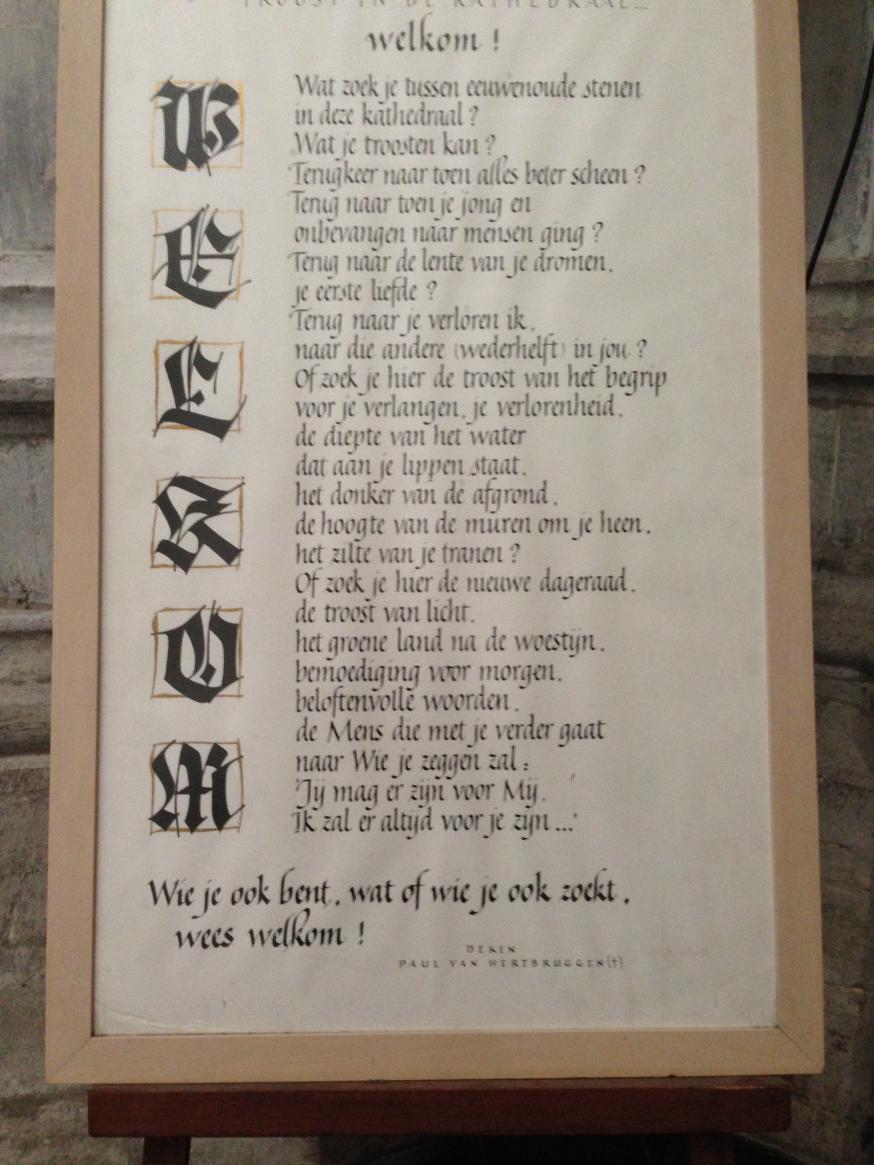 TROOST IN DE KATHEDRAAL...
welkom !
W
E
L
K
O
M
Wat zoek je tussen eeuwenoude stenen
in deze kathedraal ?
Wat je troosten kan ?
Terugkeer naar toen alles beter scheen ?
Terug naar toen je jong en
onbevangen naar mensen ging ?
Terug naar de lente van je dromen,
je eerste liefde ?
Terug naar je verloren ik,
naar die andere (wederhelft) in jou ?
Of zoek je hier de troost van het begrip
voor je verlangen, je verlorenheid,
de diepte van het water
dat aan je lippen staat,
het donker van de afgrond,
de hoogte van de muren om je heen,
het zilte van je tranen ?
Of zoek je hier de nieuwe dageraad,
de troost van licht,
het groene land na de woestijn,
bemoediging voor morgen,
beloftenvolle woorden,
de Mens die met je verder gaat
naar Wie je zeggen zal :
'Jij mag er zijn voor Mij.
Ik zal er altijd voor je zijn ...'
Wie je ook bent, wat of wie je ook zoekt,
wees welkom !
DEKEN
PAUL VAN HERTBRUGGEN (†)